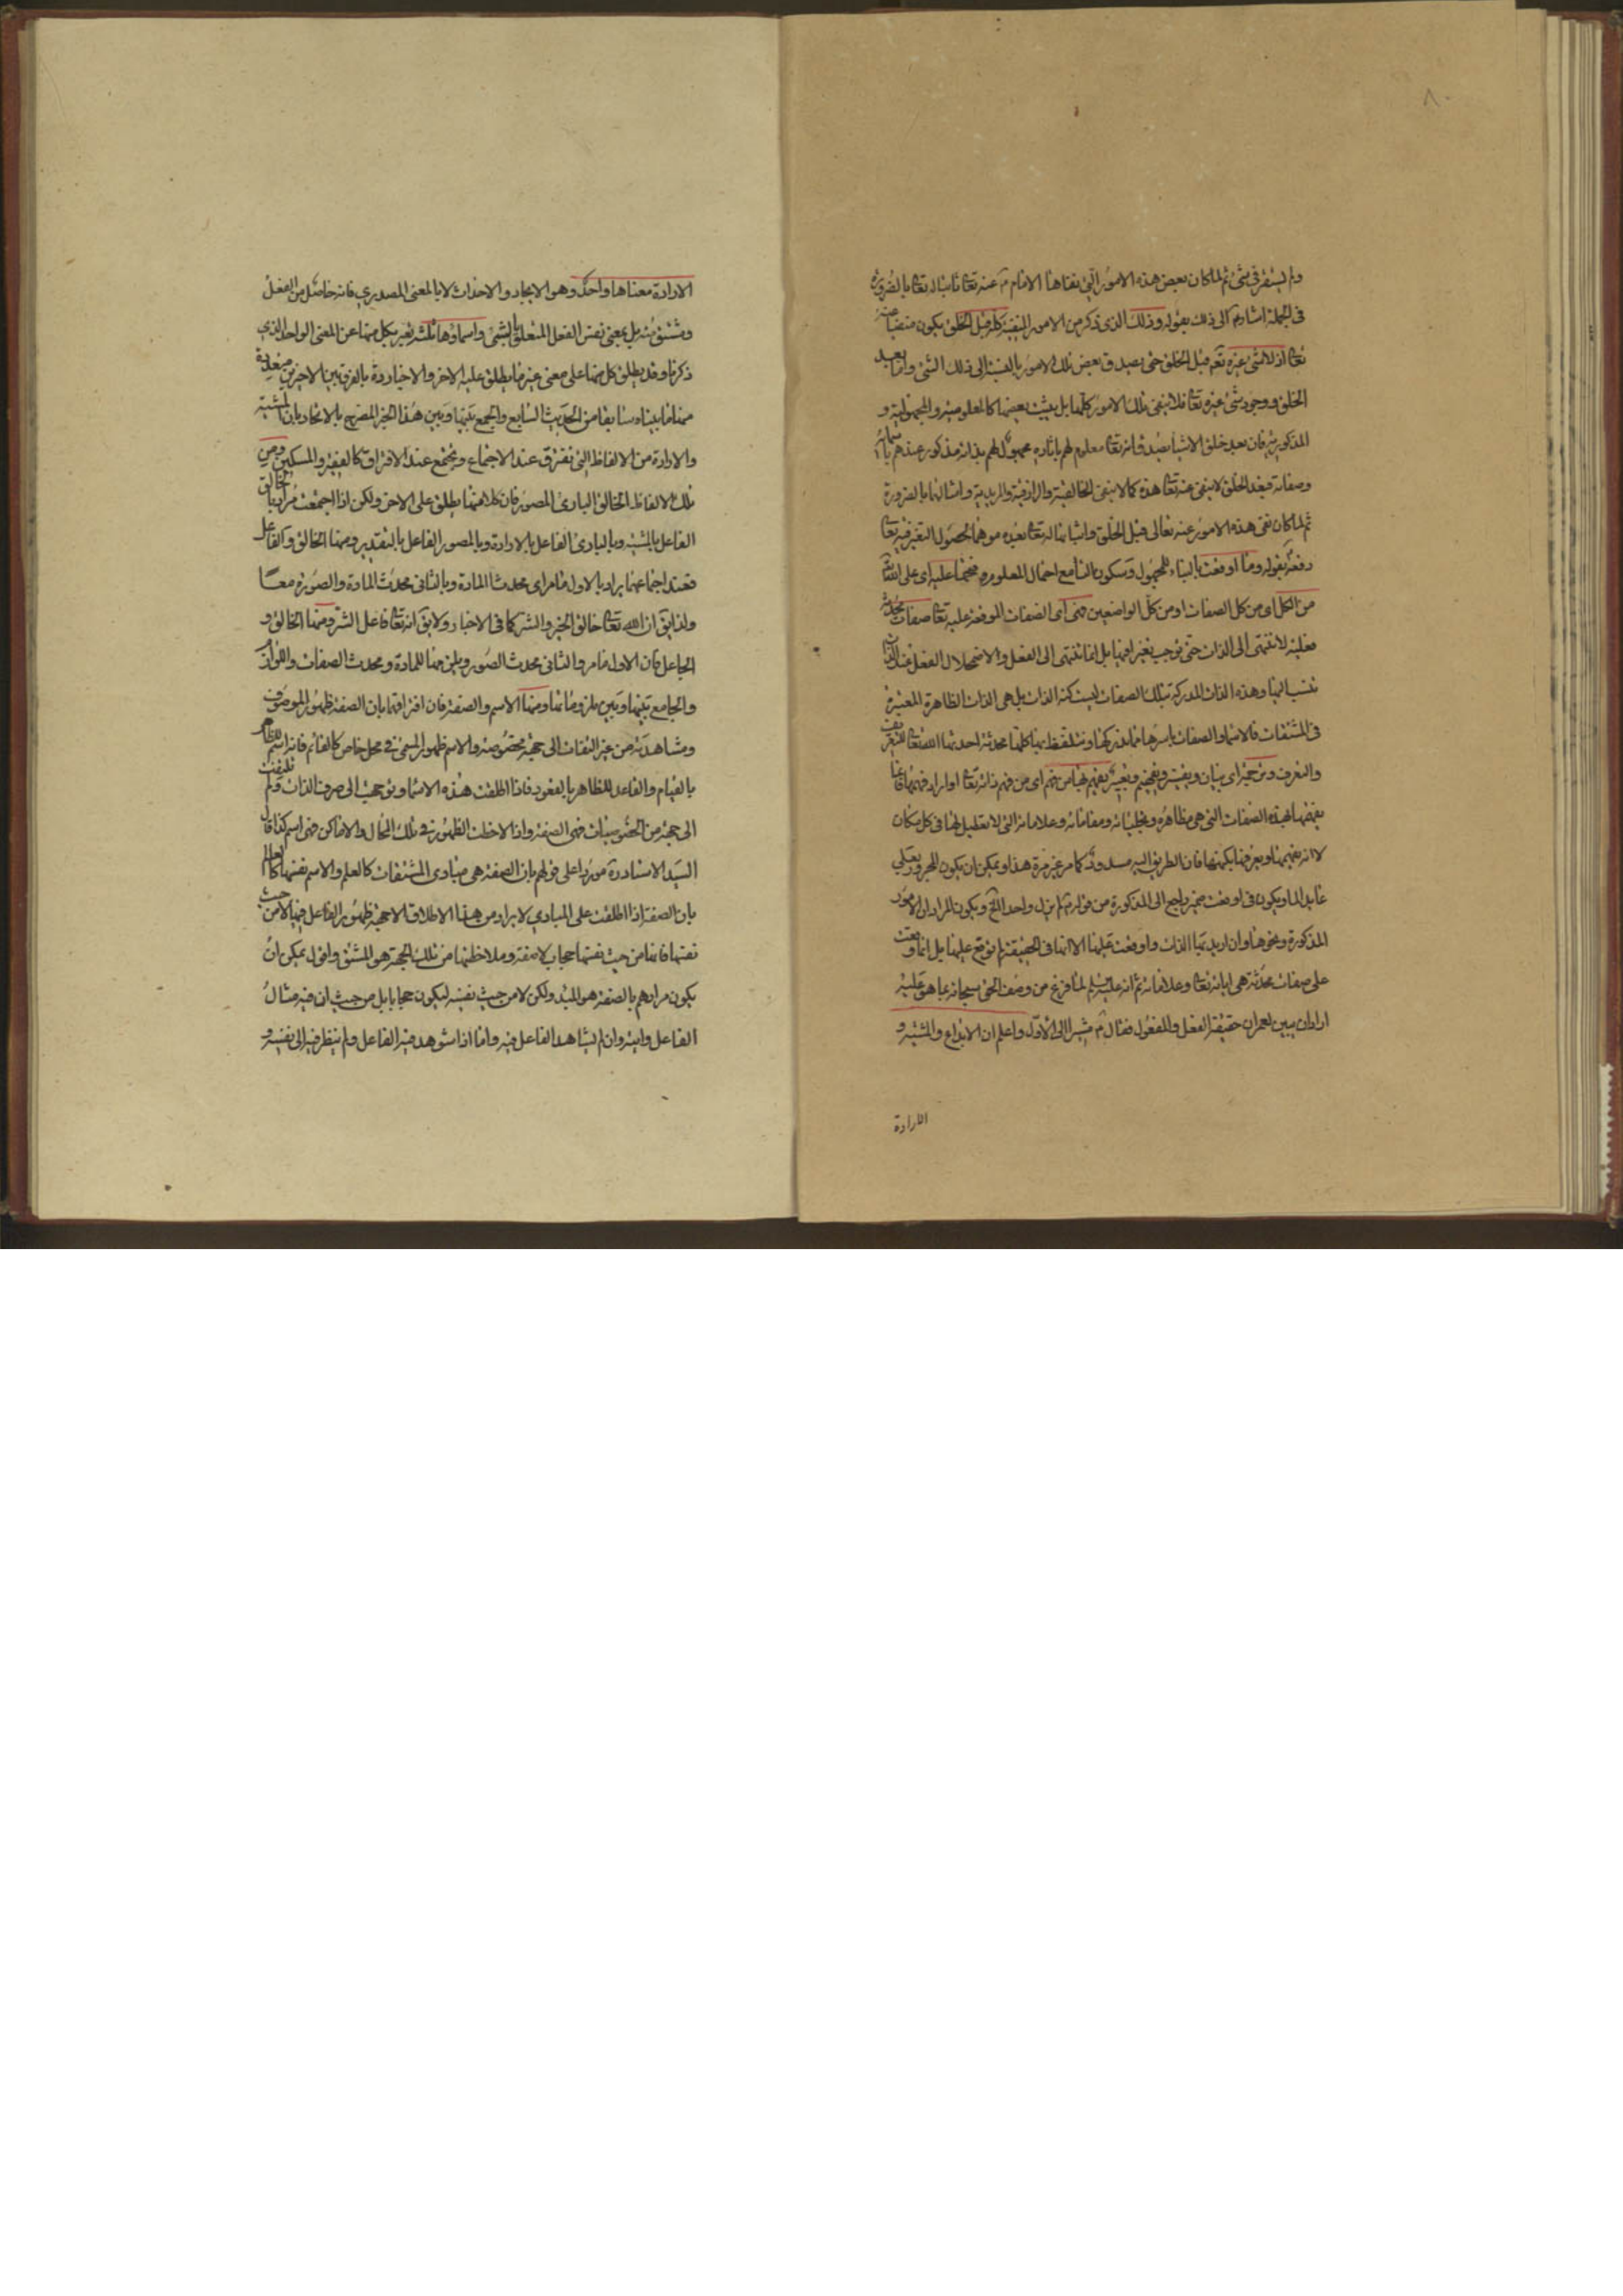 ولم يستقر في شئ ثم لما كان بعض هذه الامور التي نفاها الامام عنه تعا ثابتا له تعا بالضرورة
في الجملة اشار الى ذلك بقوله وذلك الذي ذكر من الامور المنفية كله قبل الخلق يكون منتفيا عنه
تعا اذ لا شئ غيره نعم قبل الخلق حتى يصدق بعض تلك الامور بالنسبة الى ذلك الشئ واما بعد
الخلق ووجود شئ غيره تعا فلا ينفى تلك الامور كلها بل يثبت بعضها كالمعلومية والمجهولية و
المذكورية فان بعد خلق الاشيا يصدق انه تعا معلوم لهم باثاره مجهول لهم بذاته مذكور عندهم باسمائه
وصفاته فبعد الخلق لا ينفى عنه تعا هذه كما لا ينفى الخالقية والرازقية والمريدية وامثالها بالضرورة
ثم لما كان نفى هذه الامور عنه تعالى قبل الخلق واثباتها له تعا بعده موهما لحصول التغير فيه تعا
دفعه بقوله وما اوقعت بالبناء للمجهول وسكون التا مع احتمال المعلوم عليه اى على الله
من الكل اى من كل الصفات او من كل الواضعين فهى اى الصفات الموقعة عليه تعا صفات محدثة
فعلية لا تنتهى الى الذات حتى يوجب تغيرا فيها بل انما تنتهى الى الفعل والاضمحلال الفعل عند الذات
تنسب اليها وهذه الذات المدركة بتلك الصفات ليست كنه الذات بل هى الذات الظاهرة المعتبرة
في المشتقات فالاسما والصفات باسرها مما ندركها ونتلفظ بها كلها محدثة احدثها الله تعا للتعريف
والتعرف وترجمة اى بيان وتفسير وتفهيم وتعبير يفهم بها من فهم اى من فهم ذاته تعا او اراد فهمها فانما
يفهمها بهذه الصفات التي هى مظاهره وتجلياته ومقاماته وعلاماته التي لا تعطيل لها في كل مكان
لا انه يفهمها ويعرفها بكنهها فان الطريق اليه مسدود كما مر غير مرة هذا ويمكن ان يكون المجرور بعلى
عايد الما ويكون في اوقعت ضمير راجع الى المذكورة من قوله لم يزل واحدا الخ ويكون المراد ان الامور
المذكورة ونحوها وان اريد بها الذات واوقعت عليها الا انها في الحقيقة لم توقع عليها بل انما وقعت
على صفات محدثة هى اياته تعا وعلاماته ثم انه عليه السلم لما فرغ من وصف الحق سبحانه بما هو عليه
اراد ان يبين لعمران حقيقة الفعل والمفعول فقال مشيرا الى الاول واعلم ان الابداع والمشية و
الارادة
الارادة معناها واحد وهو الايجاد والاحداث لا بالمعنى المصدري فانه حاصل من الفعل
ومشتق منه بل بمعنى نفس الفعل المتعلق بالشئ واسماؤها ثلثة يعبر بكل منها عن المعنى الواحد الذي
ذكرنا وقد يطلق كل منها على معنى غير ما يطلق عليه الاخر والاخبار دة بالفرق بين الاخرين متعددة
منها ما بيناه سابقا من الحديث السابع والجمع بينها وبين هذا الخبر المصرح بالاتحاد بان المشية
والارادة من الالفاظ التي تفترق عند الاجتماع وتجتمع عند الافتراق كالفقير والمسكين ومن
تلك الالفاظ الخالق البارئ المصور فان كلا منها يطلق على الاخر ولكن اذا اجتمعت يراد بالخالق
الفاعل بالمشية وبالبارئ الفاعل بالارادة وبالمصور الفاعل بالتقدير ومنها الخالق والفاعل
فعند اجتماعهما يراد بالاول ما مر اى محدث المادة وبالثانى محدث المادة والصورة معا
ولذا يق ان الله تعا خالق الخير والشر كما في الاخبار ولا يق انه تعا فاعل الشر ومنها الخالق و
الجاعل فان الاول ما مر والثانى محدث الصور ويلزمها للمادة ومحدث الصفات واللوازم
والجامع بينها وبين ملزوماتها ومنها الاسم والصفة فان افتراقهما بان الصفة ظهور الموصوف
ومشاهدته من غير التفات الى جهة مخصوصة والاسم ظهور المسمى في محل خاص كالقائم فانه اسم للظاهر
بالقيام والقاعد للظاهر بالقعود فاذا اطلقت هذه الاسما وتوجهت الى صرف الذات ولم تلتفت
الى جهة من الخصوصيات فهى الصفة واذا لاحظت الظهور في تلك المحال والاماكن فهى اسم كذا قال
السيد الاستاد ره موردا على قولهم بان الصفة هى مبادى المشتقات كالعلم والاسم نفسها كالعالم
بان الصفة اذا اطلقت على المبادي لا يراد من هذا الاطلاق الا جهة ظهور الفاعل فيها لا من حيث
نفسها فانها من حيث نفسها حجاب لا صفة وملاحظتها من تلك الجهة هو المشتق واقول يمكن ان
يكون مرادهم بالصفة هو المبدء ولكن لا من حيث نفسه ليكون حجابا بل من حيث ان فيه مثال
الفاعل وايته وان لم يشاهد الفاعل فيه واما اذا شوهد فيه الفاعل ولم ينظر فيه الى نفسه